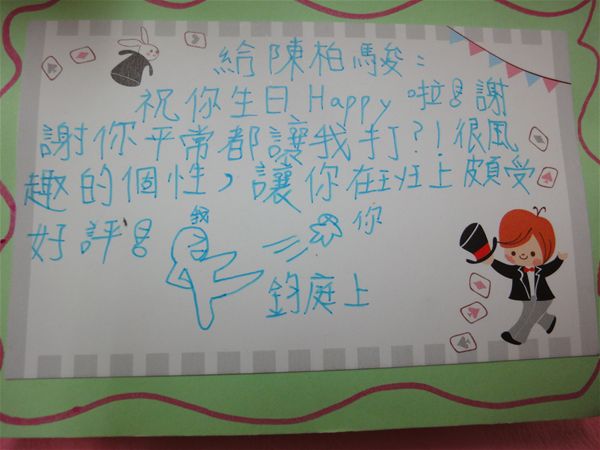 給陳柏駿：
祝你生日Happy 啦！謝
謝你平常都讓我打？！很風
趣的個性，讓你在班上頗受
好評！
我
你
鈞庭上